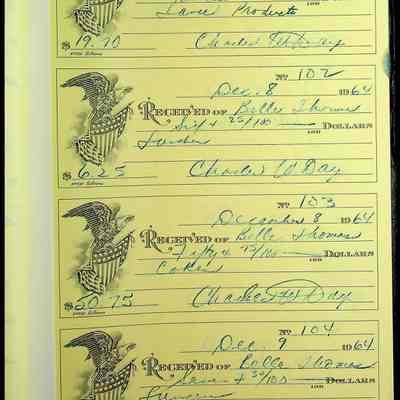 Lance Products
$ 19.70 Charles W Day
No 102
Dec. 8 1964
RECEIVED OF Belle Thomas
Six & 25/100 DOLLARS
100
$ 6.25 Charles W Day
No 103
December 8 1964
RECEIVED OF Belle Thomas
Fifty & 75/100 DOLLARS
100
Cokes
$ 50.75 Charles W Day
No 104
Dec. 9 1964
RECEIVED OF Belle Thomas
Seven & 30/100 DOLLARS
100